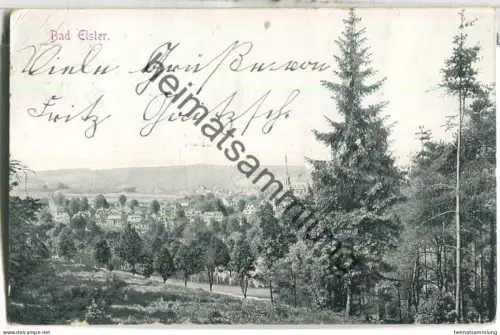 Bad Elster.
Viele Grüße von
Fritz
heimatsammlung.de
© heimatsammlung.de